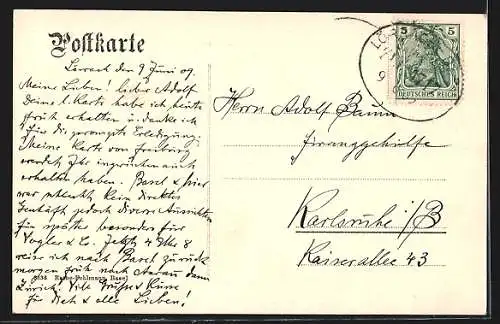 Postkarte
Lörrach den 9 Juni 09.
Meine Lieben! lieber Adolf
Deine l. Karte habe ich heute
früh erhalten u. danke ich
für die prompte Erledigung.
Meine Karte von Freiburg
werdet Ihr inzwischen auch
erhalten haben. Basel & hier
war schlecht kein direktes
Geschäft jedoch diverse Aussichten
für später besonders für
Vogler & Co. Jetzt 4 Uhr 8
reise ich nach Basel zurück
morgen früh nach Aarau dann
Zürich! Viele Grüße & Küsse
für Dich & alle Lieben!
Basel
5 5
DEUTSCHES REICH
Herrn Adolf Baum
Finanzgehülfe
Karlsruhe i/B
Kaiserallee 43